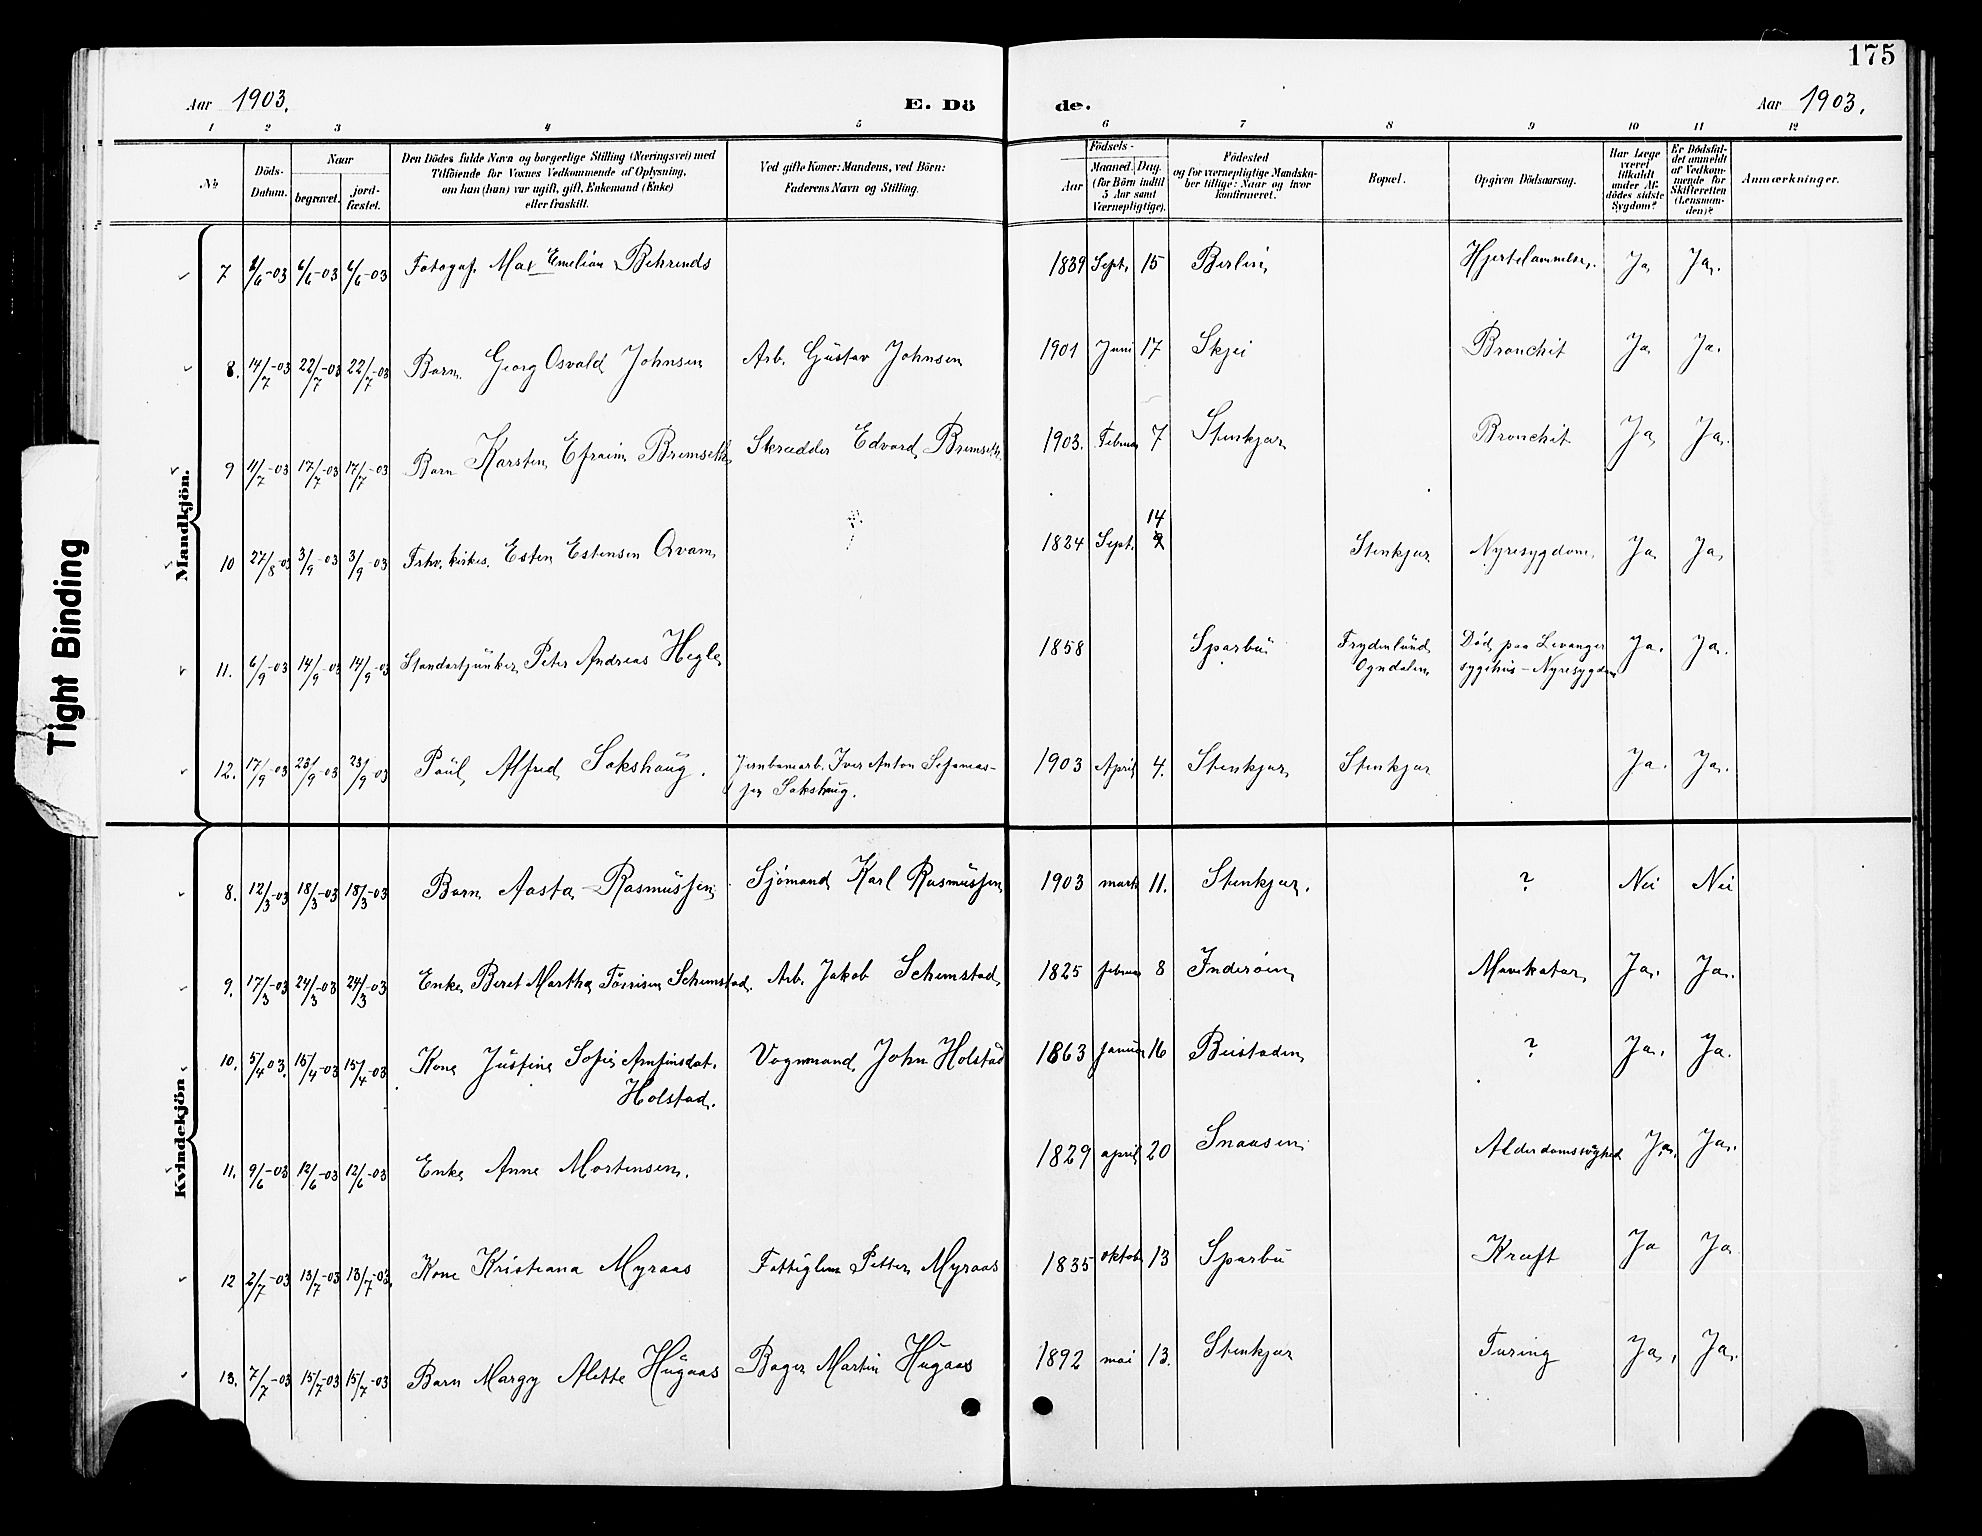 175
Aar 1903. E. Dö de. Aar 1903.
1 2 3 4 5 6 7 8 9 10 11 12
No
Döds-Datum.
Naar
begravet.
jord-fæstet.
Den Dödes fulde Navn og borgerlige Stilling (Næringsvei) med
Tilföiende for Voxnes Vedkommende af Oplysning,
om han (hun) var ugift, gift, Enkemand (Enke)
eller fraskilt.
Ved gifte Koner: Mandens, ved Börn:
Faderens Navn og Stilling.
Födsels-
Aar
Maaned. Dag.
(for Börn indtil
5 Aar samt
Værnepligtige).
Födested
og for værnepligtige Mandska-
ber tillige: Naar og hvor
konfirmeret.
Bopæl.
Opgiven Dödsaarsag.
Har Læge
været
tilkaldt
under Af-
dödes sidste
Sygdom?
Er Dödsfal-
det anmeldt
af Vedkom-
mende for
Skifteretten
(Lensman-
den)?
Anmærkninger.
Mandkjön.
7 6/6-03 6/6-03 Fotograf. Max Emelian Behrends 1839 Sept. 15 Berlin Hjertelammelse. Ja Ja.
8. 14/7-03 22/7-03 22/7-03 Barn Georg Osvald Johnsen Arb. Gustav Johnsen 1901 Juni 17 Skjei Bronchit Ja Ja.
9 11/7-03 17/7-03 17/7-03 Barn Karsten Efraim Bremseth Skrædder Edvard Bremseth. 1903. Februar 7 Stenkjær Bronchit Ja Ja.
10 27/8-03 3/9-03 3/9-03 Esten Estensen Qvam 1824 Sept. 14 Stenkjær Nyresygdom. Ja Ja.
11. 6/9-03 14/9-03 14/9-03 Standartjunker Peter Andreas Hegle 1858 Sparbu Frydenlund Ogndalen Död paa Levanger
sygehus - Nyresygdom Ja. Ja.
12. 17/9-03 23/9-03 23/9-03 Paul Alfred Sakshaug. Jernbanearb. Iver Anton
Sakshaug. 1903 April 4. Stenkjær Stenkjær Ja. Ja.
Kvindekjön
8. 12/3-03 18/3-03 18/3-03 Barn Aasta Rasmussen Sjömand Karl Rasmussen 1903 marts 11. Stenkjær. ? Nei Nei
9. 17/3-03 24/3-03 24/3-03 Enke Beret Martha Schemstad. Arb. Jakob Schemstad 1825 februar 8 Inderöen Mavekatar Ja. Ja.
10. 5/4 03. 15/4-03 15/4-03 Kone Justine Sofie Arntinsdat. Vognmand John Holstad 1863 Januar 16 Beitstaden ? Ja. Ja.
Holstad.
11. 9/6-03 12/6-03 12/6-03 Enke Anne Mortensen. 1829 april 20 Snaasen Alderdomssvaghed Ja. Ja.
12 2/7-03 13/7-03 13/7-03. Kone Kristiana Myraas Fattiglem Petter Myraas 1835 oktob 13 Sparbu Kræft Ja Ja
13. 7/7-03 15/7-03 15/7-03 Barn Margy Alette Hugaas Bager Martin Hugaas 1892 mai 13. Stenkjær Tæring Ja. Ja.
Tight Binding